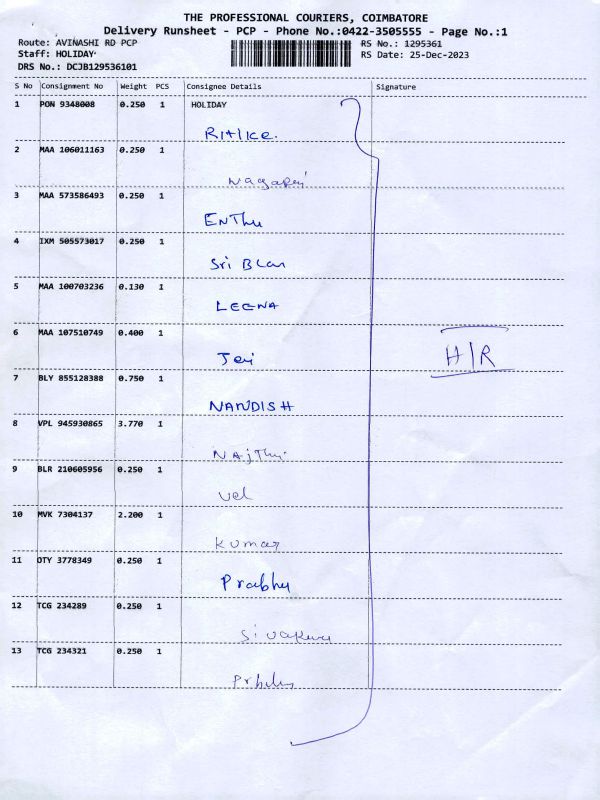 THE PROFESSIONAL COURIERS, COIMBATORE
Delivery Runsheet - PCP - Phone No.:0422-3505555 - Page No.:1
Route: AVINASHI RD PCP RS No.: 1295361
Staff: HOLIDAY RS Date: 25-Dec-2023
DRS No.: DCJB129536101
S No Consignment No Weight PCS Consignee Details Signature
1 PON 9348008 0.250 1 HOLIDAY
2 MAA 106011163 0.250 1
Nagaraj
3 MAA 573586493 0.250 1
EnThu
4 IXM 505573017 0.250 1
Sri
5 MAA 100703236 0.130 1
LEENA
6 MAA 107510749 0.400 1
H/R
Jeri
7 BLY 855128388 0.750 1
NANDISH
8 VPL 945930865 3.770 1
9 BLR 210605956 0.250 1
vel
10 MVK 7304137 2.200 1
Kumar
11 OTY 3778349 0.250 1
Prabhu
12 TCG 234289 0.250 1
13 TCG 234321 0.250 1